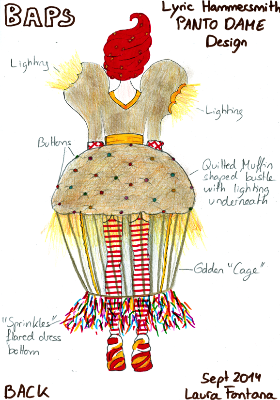 BAPS
Lyric Hammersmith
PANTO DAME
Design
Lighting
Lighting
Buttons
Quilted Muffin
shaped bustle
with lighting
underneath
Golden "Cage"
"Sprinkles"
flared dress
bottom
Sept 2014
Laura Fontana
BACK